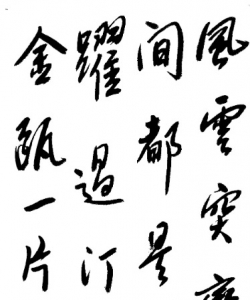 風雲突變
間都是
躍過汀
金甌一片